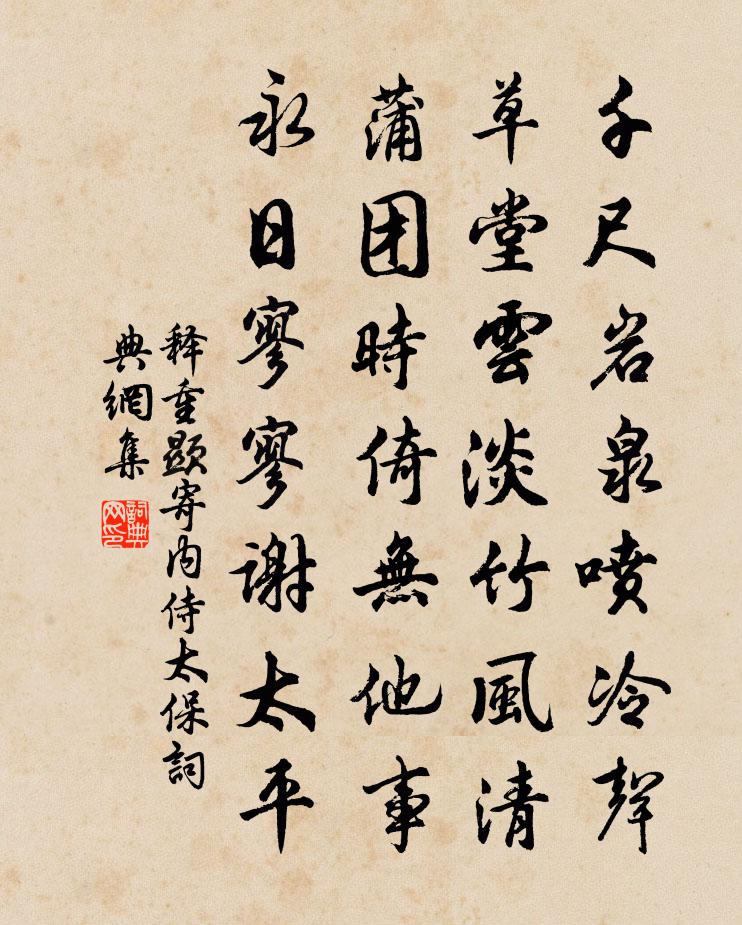 千尺岩泉喷冷聲
草堂雲淡竹風清
蒲团時倚無他事
永日寥寥谢太平
释重顯寄内侍太保詞
典網集
詞典网印